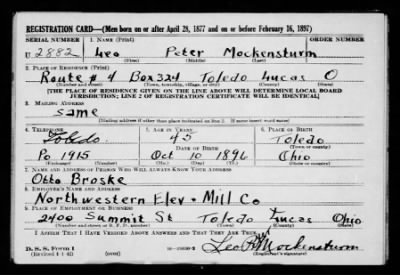 REGISTRATION CARD—(Men born on or after April 28, 1877 and on or before February 16, 1897)
SERIAL NUMBER 1. NAME (Print) ORDER NUMBER
U 2882 Leo Peter Mockensturm
(First) (Middle) (Last)
2. PLACE OF RESIDENCE (Print)
Route # 4 Box 324 Toledo Lucas O
(Number and street) (Town, township, village, or city) (County) (State)
[THE PLACE OF RESIDENCE GIVEN ON THE LINE ABOVE WILL DETERMINE LOCAL BOARD
JURISDICTION; LINE 2 OF REGISTRATION CERTIFICATE WILL BE IDENTICAL]
3. MAILING ADDRESS
same
[Mailing address if other than place indicated on line 2. If same insert word same]
4. TELEPHONE 5. AGE IN YEARS 6. PLACE OF BIRTH
Toledo. 45 Toledo
DATE OF BIRTH (Town or county)
Po 1915 Oct 10 1896 Ohio
(Exchange) (Number) (Mo.) (Day) (Yr.) (State or country)
7. NAME AND ADDRESS OF PERSON WHO WILL ALWAYS KNOW YOUR ADDRESS
Otto Broske
8. EMPLOYER'S NAME AND ADDRESS
Northwestern Elev + Mill Co
9. PLACE OF EMPLOYMENT OR BUSINESS
2400 Summit St Toledo Lucas Ohio
(Number and street or R. F. D. number) (Town) (County) (State)
I AFFIRM THAT I HAVE VERIFIED ABOVE ANSWERS AND THAT THEY ARE TRUE.
D. S. S. Form 1
(Revised 4-1-42) (over) Leo P Mockensturm
(Registrant's signature)